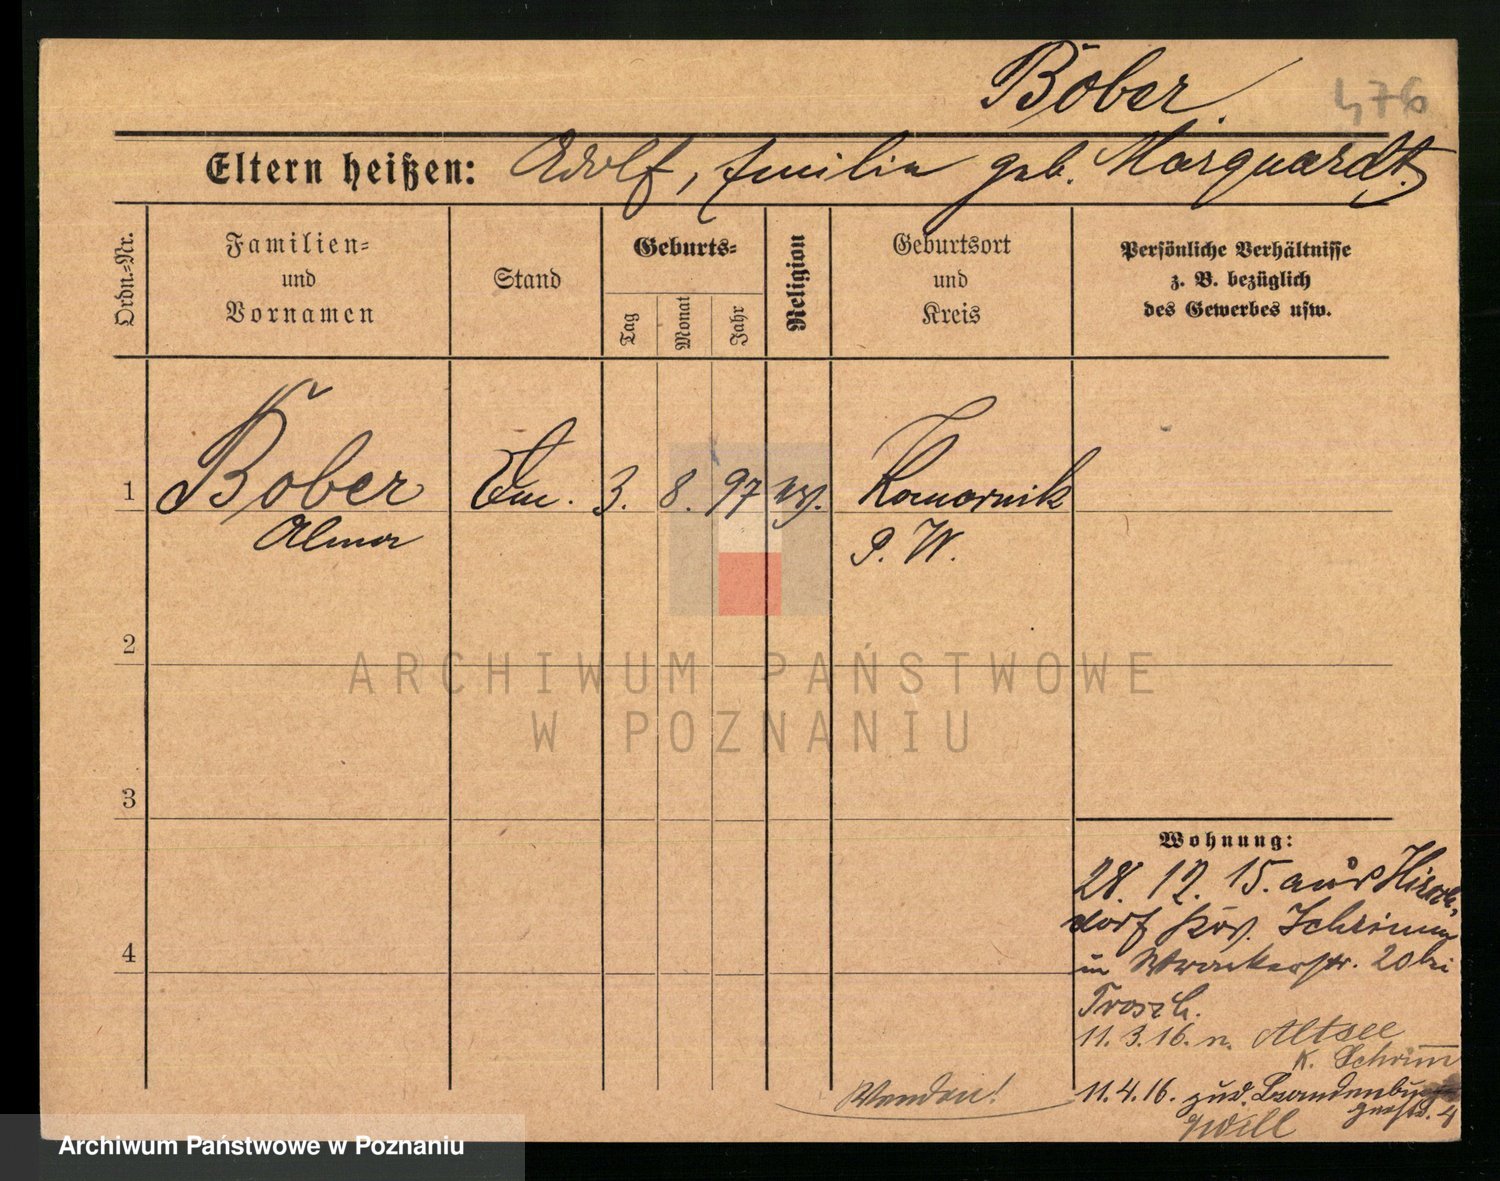 Bober.
476
Eltern heißen: Adolf, Emilie geb. Marquardt.
Ordn.-Nr.
Familien-
und
Vornamen
Stand
Geburts-
Tag
Monat
Jahr
Religion
Geburtsort
und
Kreis
Persönliche Verhältnisse
z. B. bezüglich
des Gewerbes usw.
1 Bober 3. 8. 97 ev. Komornik
Alma P. W.
2
3
4
ARCHIWUM PAŃSTWOWE
W POZNANIU
Wohnung:
28. 12. 15. aus
dorf Schrimm
in 20 bei
11. 3. 16. n. Altsee
K. Schrimm
11. 4. 16. zud. Brandenburger
str. 4
Wenden!
Archiwum Państwowe w Poznaniu